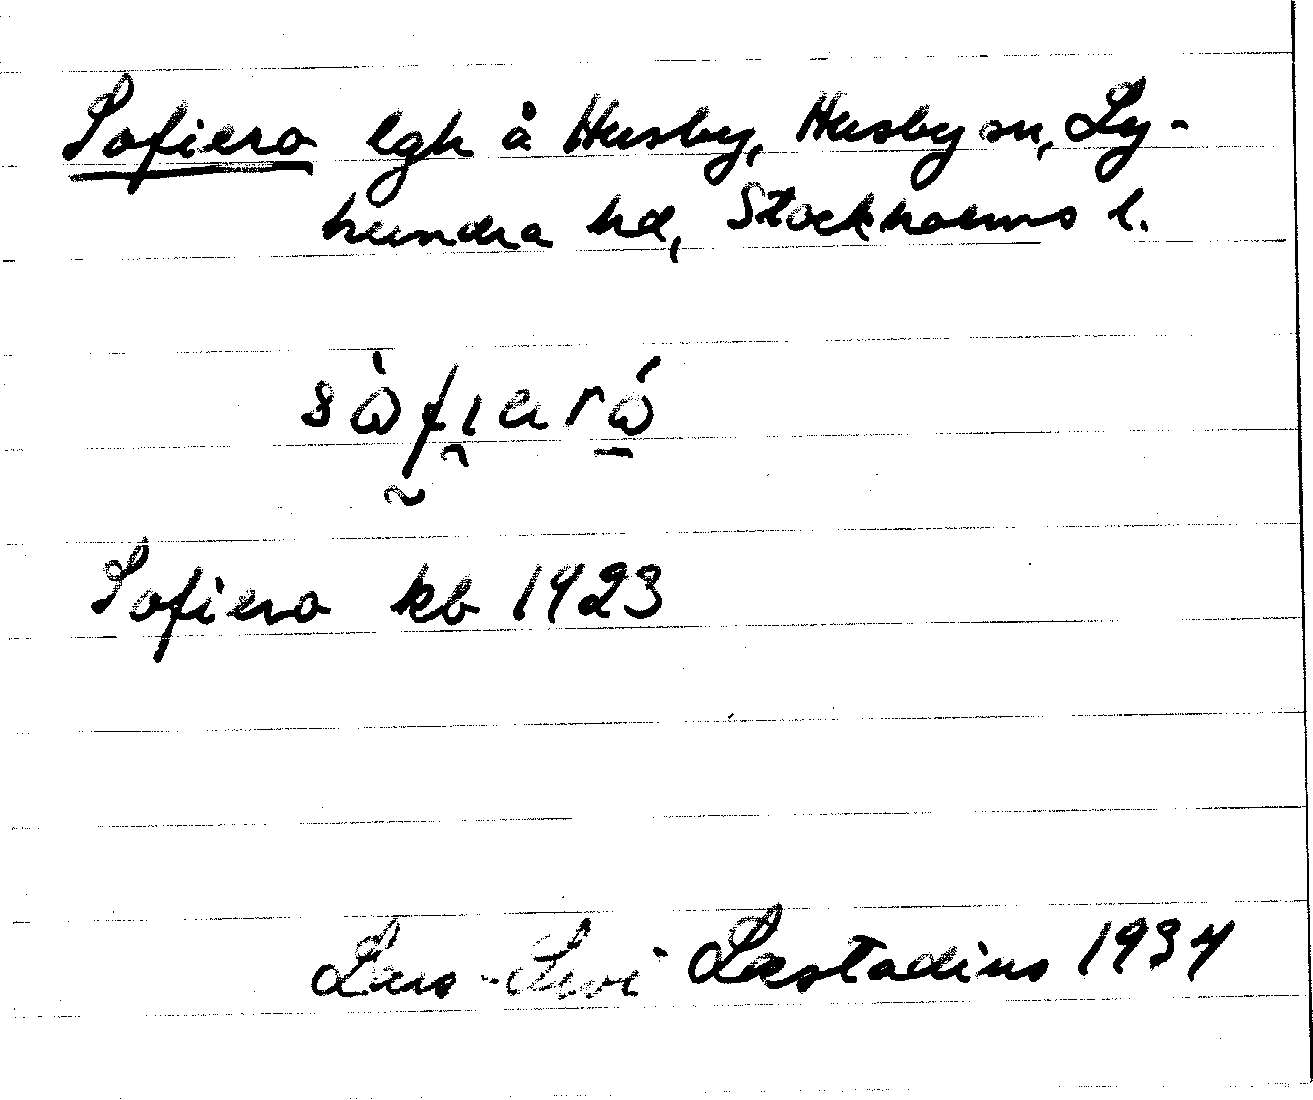 Sofiero lgh å Husby, Husby sn, Ly-
hundra hd, Stockholms l.
sὼfıarώ
Sofiero kb 1923
Lars-Levi Læstadius 1934